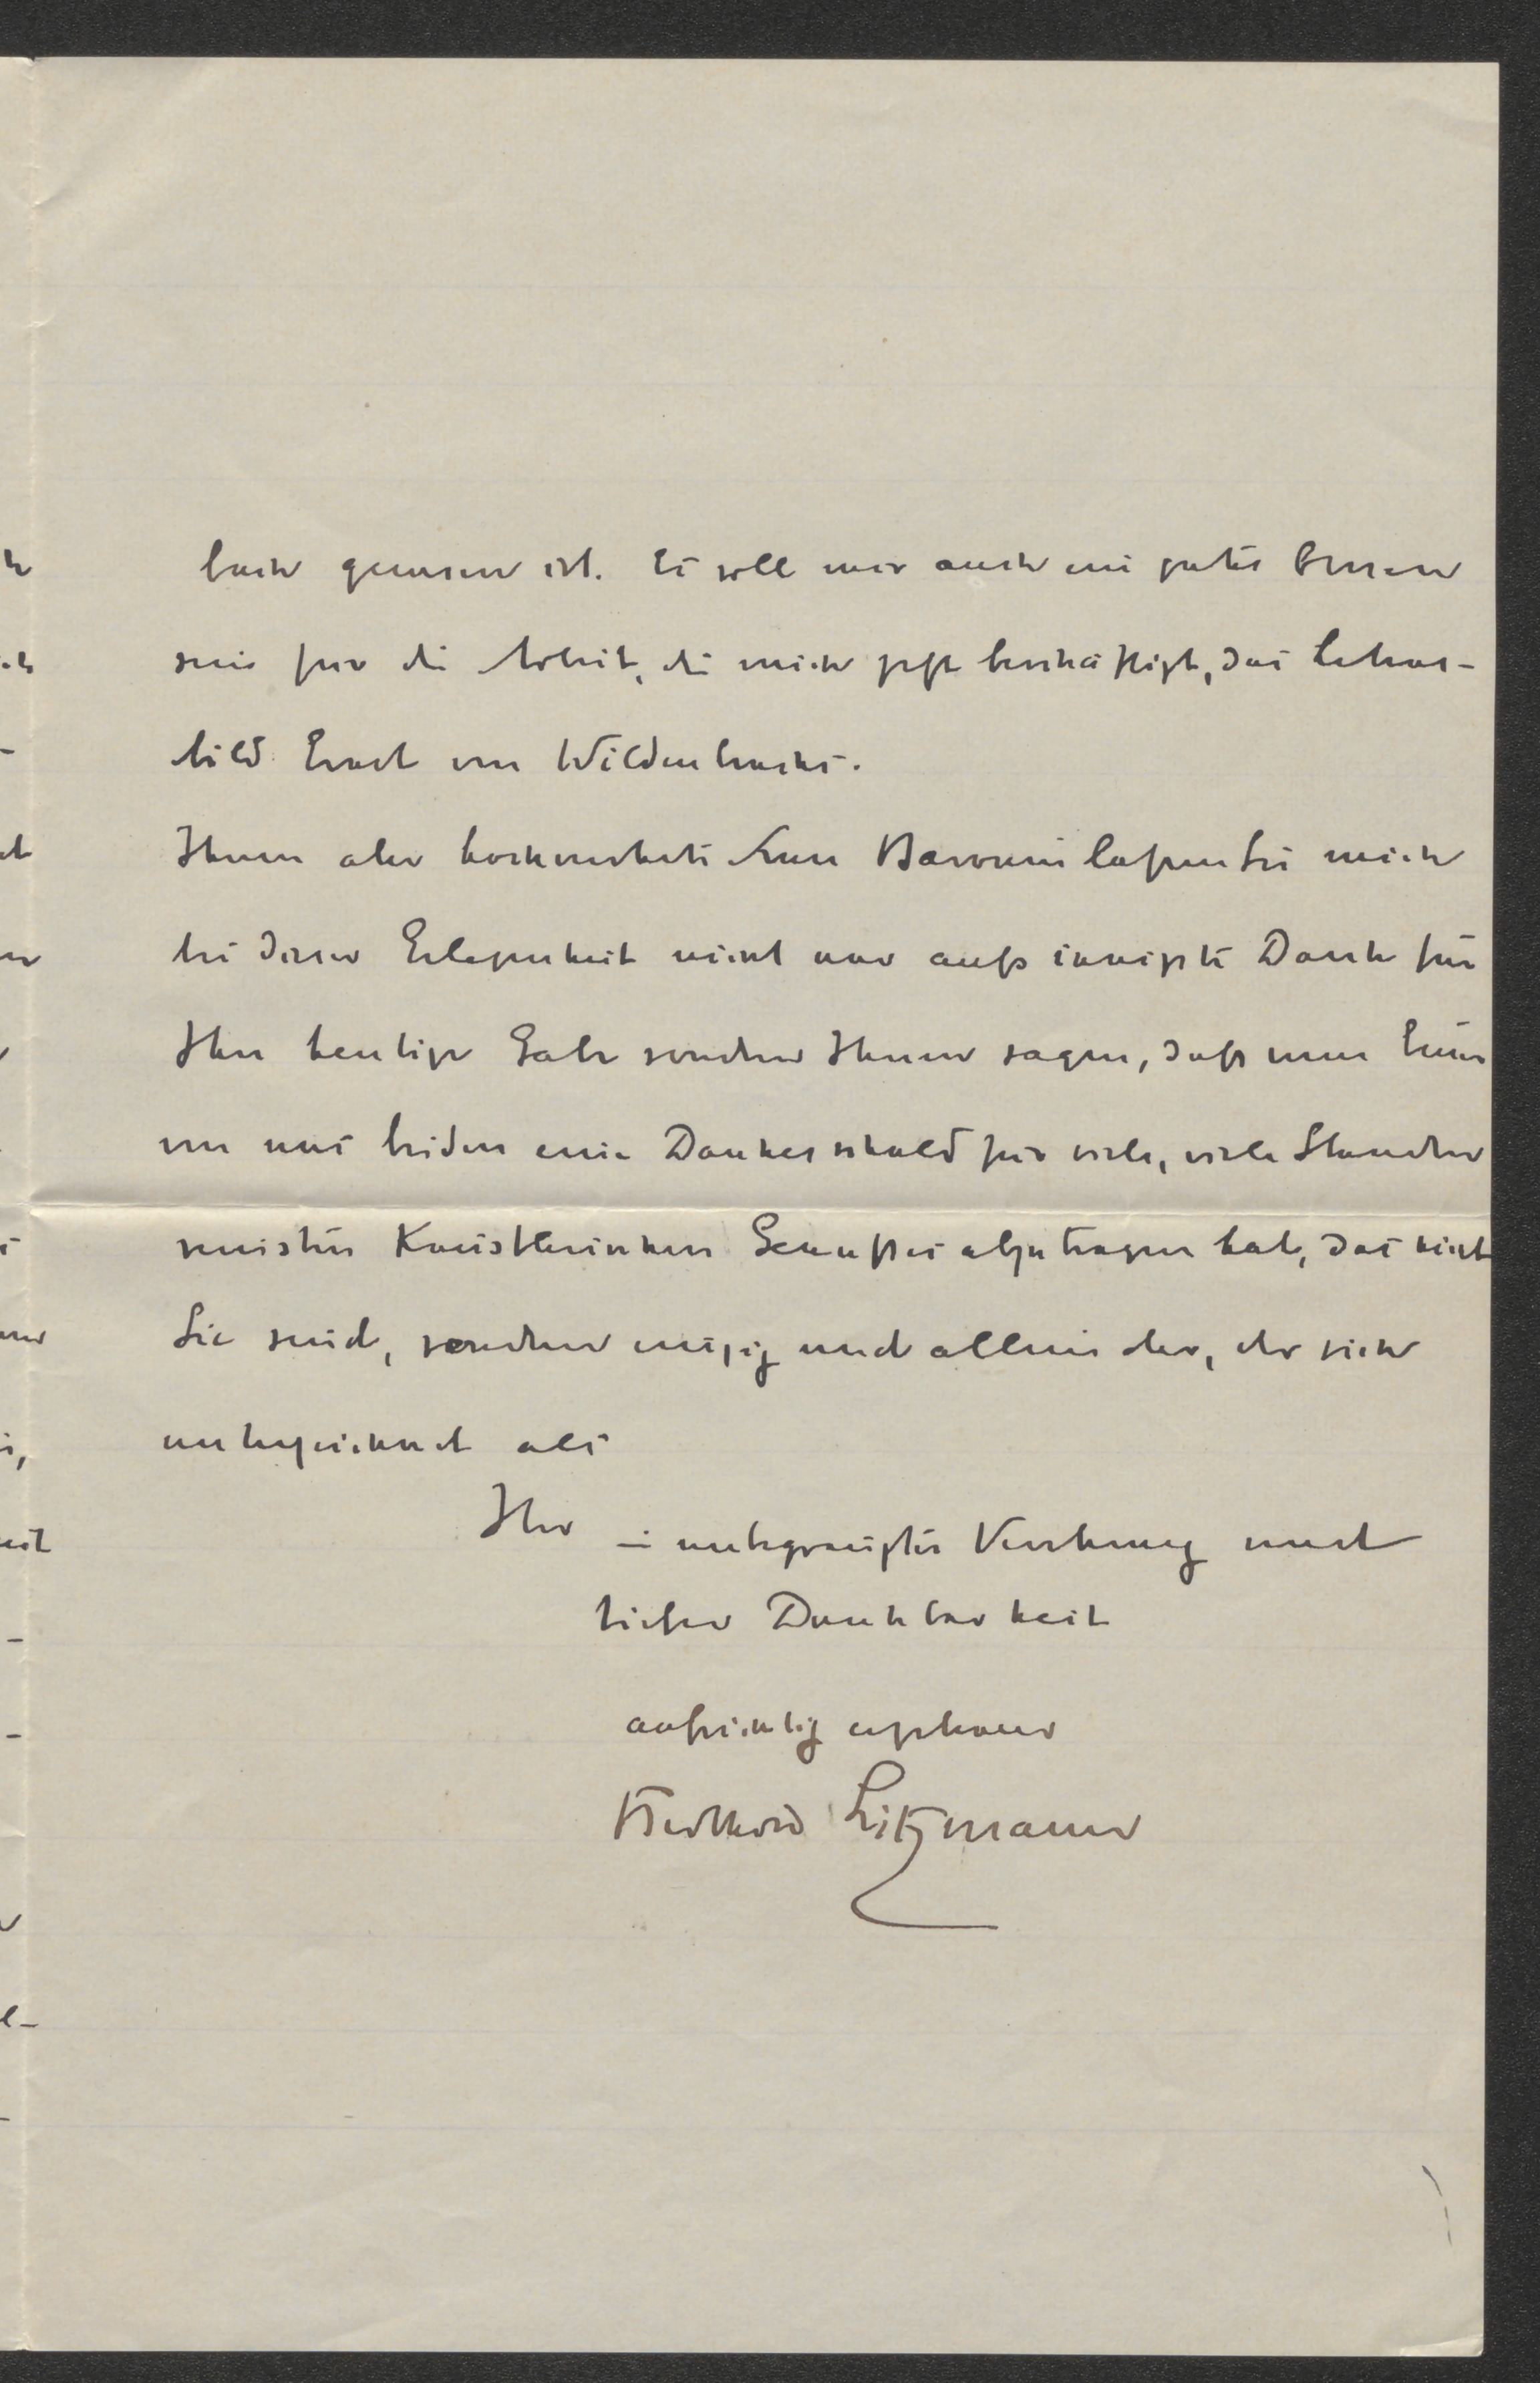 buch gewesen ist. Es soll mir auch ein gutes Omen
sein für die Arbeit, die mich jetzt beschäftigt, das Lebens-
bild Ernst von Wildenbruchs.
Ihnen aber hochverehrte Frau Baronin lassen Sie mich
bei dieser Gelegenheit nicht nur aufs innigste Dank für
Ihre heutige Gabe sondern Ihnen sagen, daß wenn einer
von uns beiden eine Dankesschuld für viele, viele Stunden
reinsten künstlerischen Genusses abzutragen hat, das nicht
Sie sind, sondern einzig und allein der, der sich
unterzeichnet als
Ihr in unbegrenzter Verehrung und
tiefer Dankbarkeit
aufrichtig ergebener
Berthold Litzmann